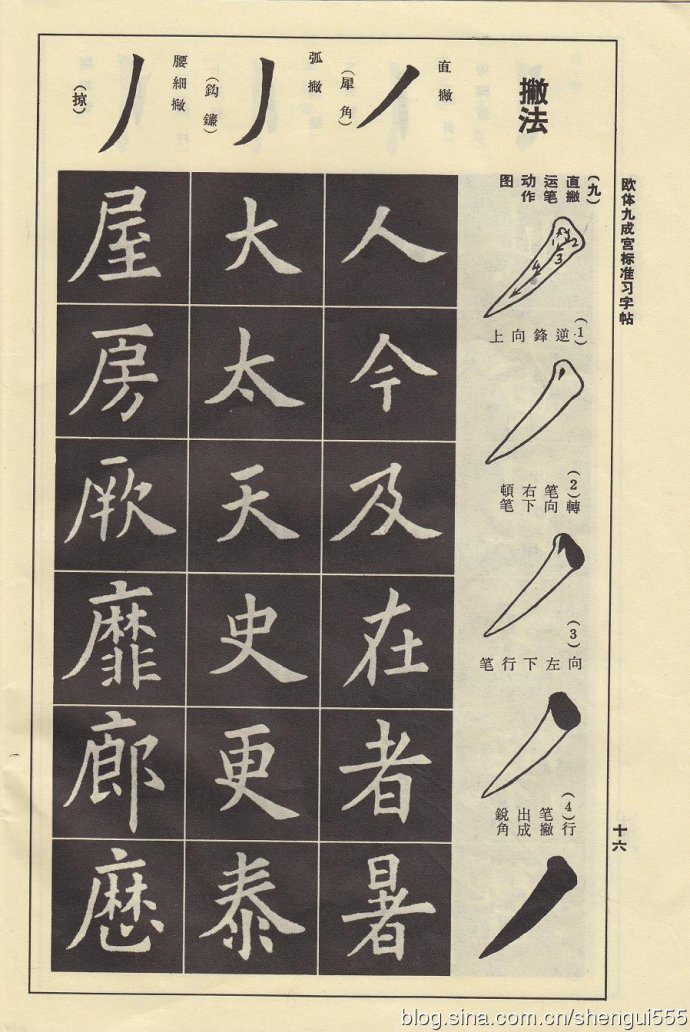 欧体九成宫标准习字帖
十六
撇法
直撇
(犀角)
弧撇
(鈎鐮)
腰細撇
(掠)
(九)
直撇
运笔
动作
图
1 2 3 4
(1)逆鋒向上
(2)轉
笔向
右下
頓笔
(3)向左下行笔
(4)行
笔撇
出成
鋭角
人今及在者暑
大太天史更泰
屋房厥靡廊歷
blog.sina.com.cn/shengui555